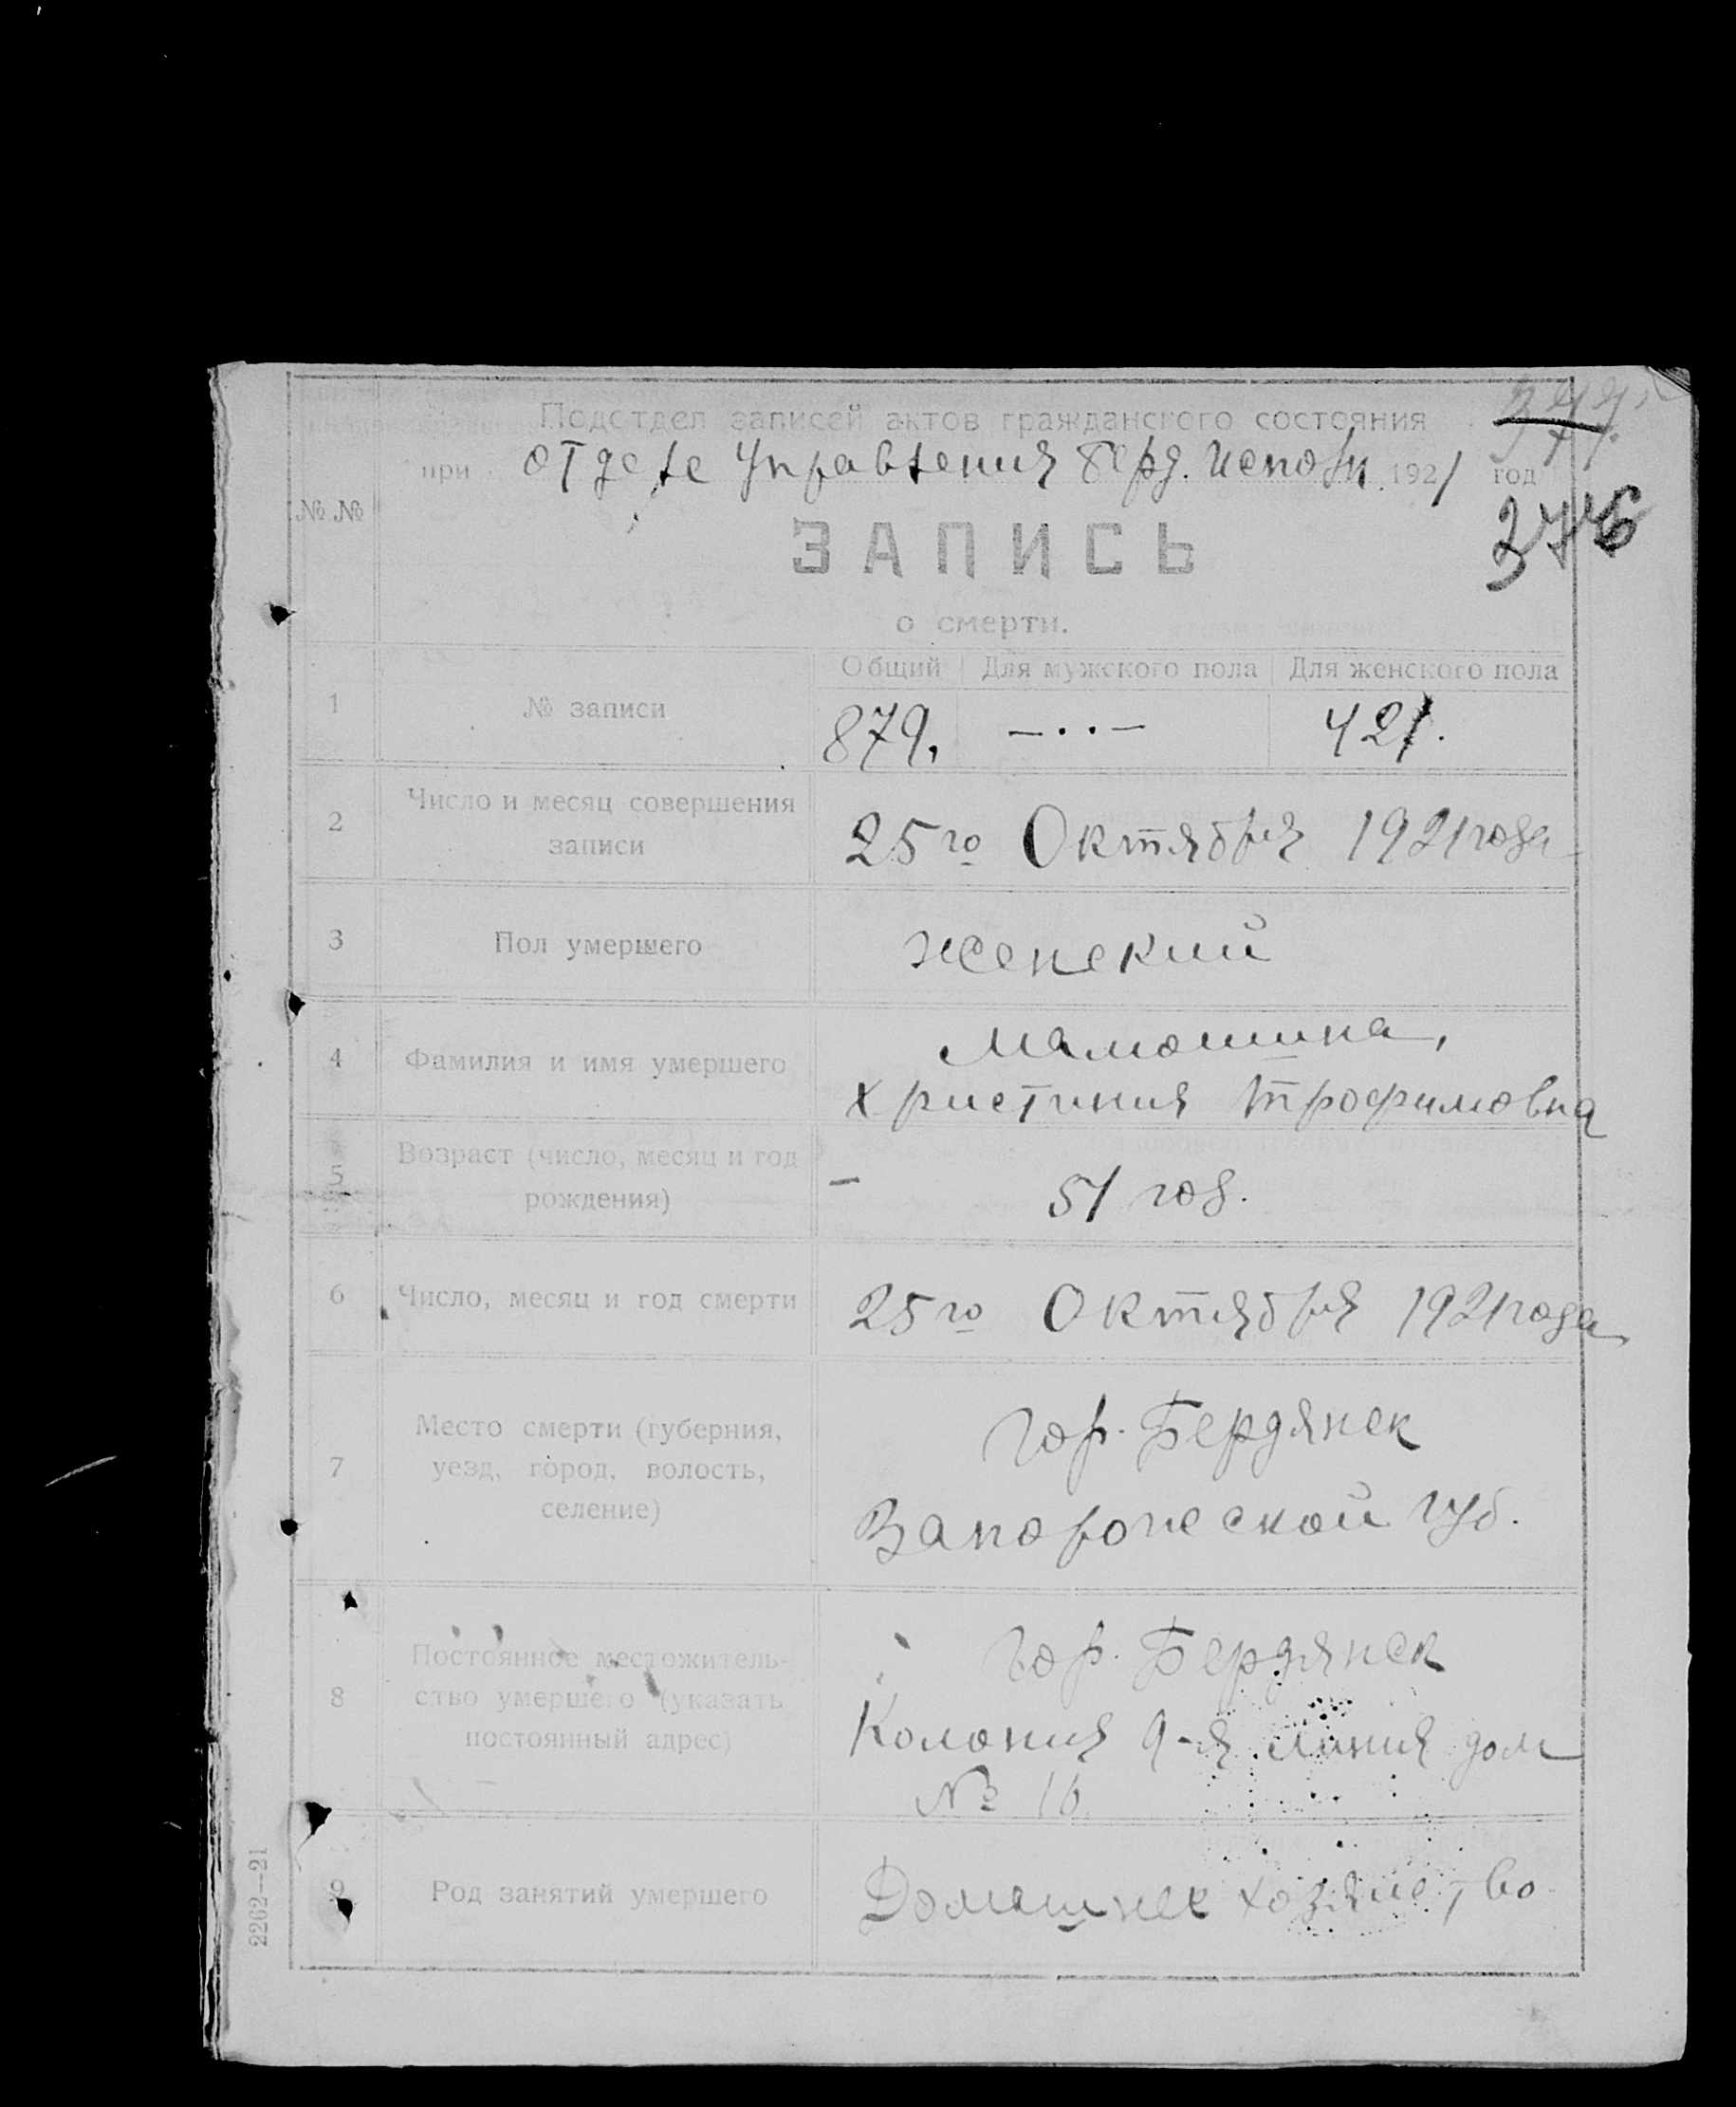 Подотдел записей актов гражданского состояния
при отделе Управления Берд. Исполк. 1921 год
376
№.№
ЗАПИСЬ
о смерти.
Общий Для мужского пола Для женского пола
1 № записи 879. —··— 421.
2 Число и месяц совершения
записи
25го Октября 1921 года
3 Пол умершего Женский
4 Фамилия и имя умершего
Мамошина,
Христиния Трофимовна
5 Возраст (число, месяц и год
рождения)
— 51 год.
6 Число, месяц и год смерти 25го Октября 1921 года
7 Место смерти (губерния,
уезд, город, волость,
селение)
Гор. Бердянск
Запорожской губ.
8 Постоянное местожитель-
ство умершего (указать
постоянный адрес)
Гор. Бердянск
Колония 9-я линия дом
№ 16
9 Род занятий умершего Домашнее хозяйство
2262—21